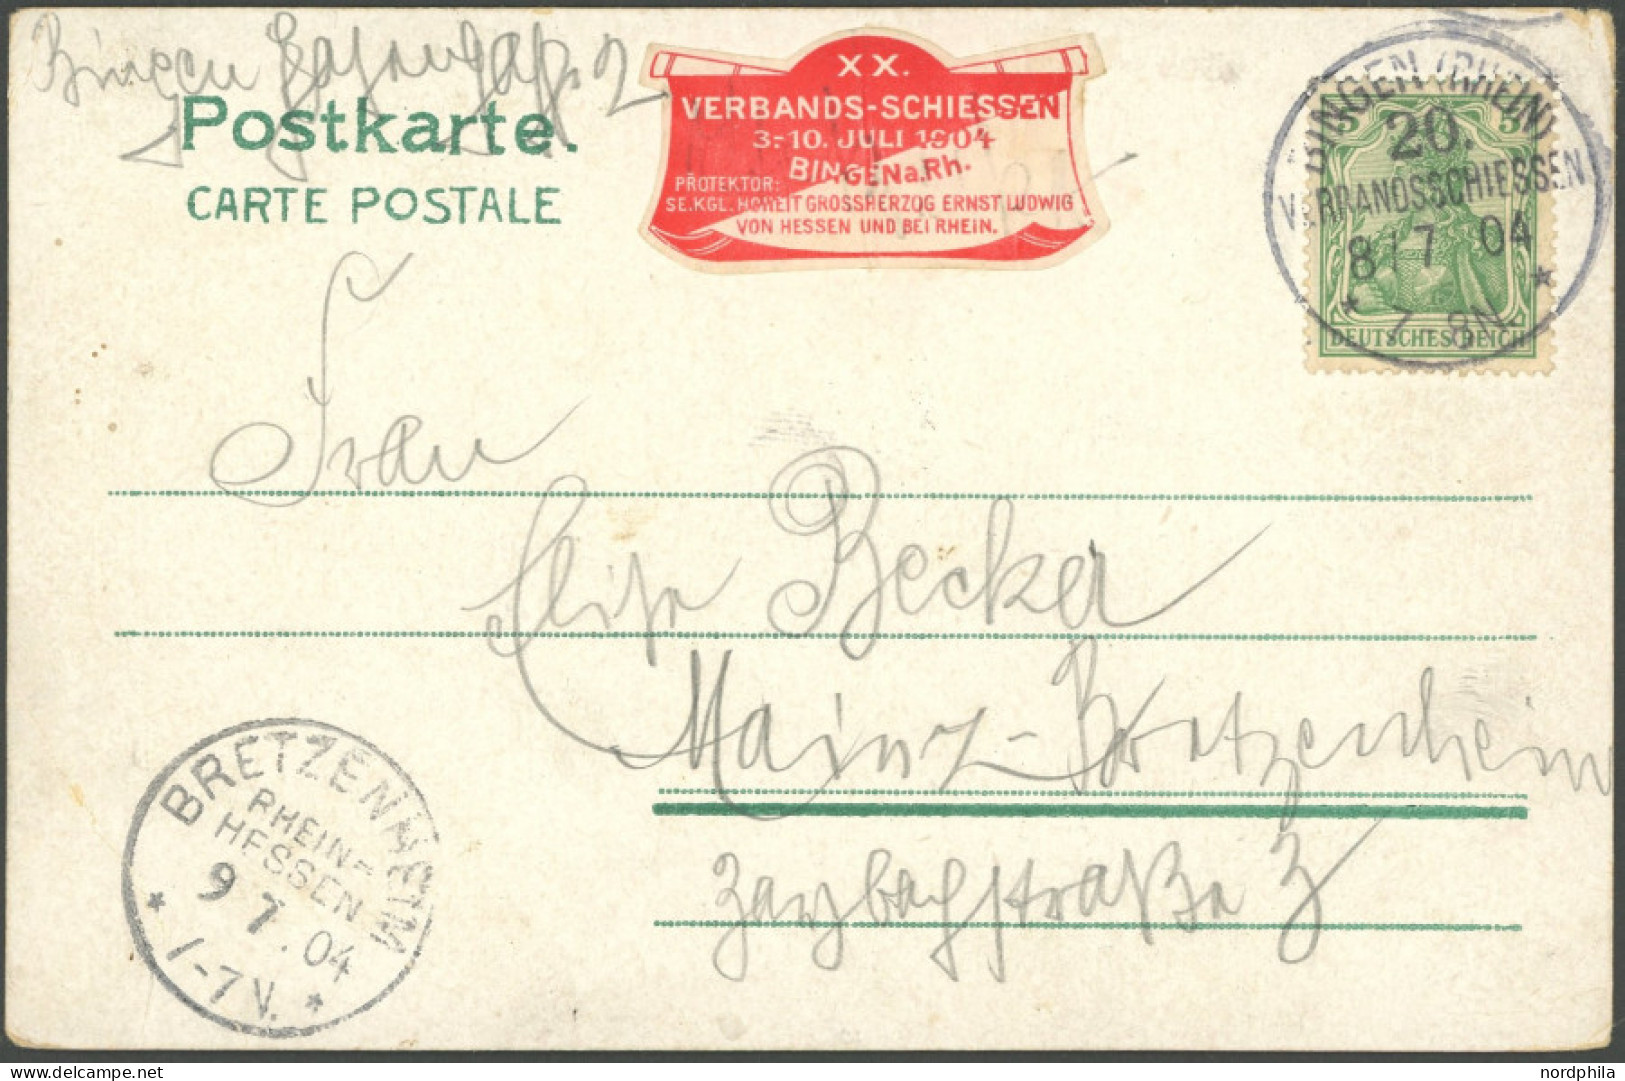 Bingen 2
Postkarte.
CARTE POSTALE
XX.
VERBANDS-SCHIESSEN
3.-10. JULI 1904
BINGEN a. Rh.
PROTEKTOR:
SE. KGL. HOHEIT GROSSHERZOG ERNST LUDWIG
VON HESSEN UND BEI RHEIN.
BINGEN (RHEIN)
20.
VERBANDSSCHIESSEN
8/7 04
* 7-8N. *
5 5
DEUTSCHES REICH
Frau
Elise Becker
Mainz-Bretzenheim
BRETZENHEIM
RHEIN=
HESSEN
9 7. 04
* 1-7 V. *
nordphila